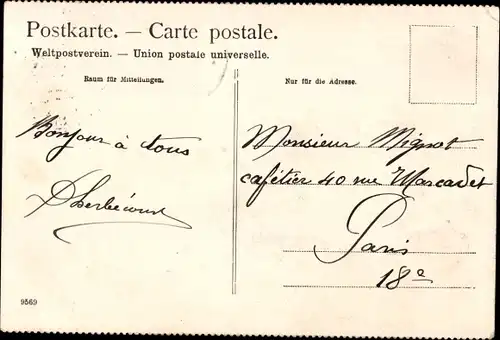 Postkarte. — Carte postale.
Weltpostverein. — Union postale universelle.
Raum für Mitteilungen.
Nur für die Adresse.
Bonjour à tous
Dherbécourt
Monsieur Mignot
cafétier 40 rue Marcadet
Paris
18e
9569